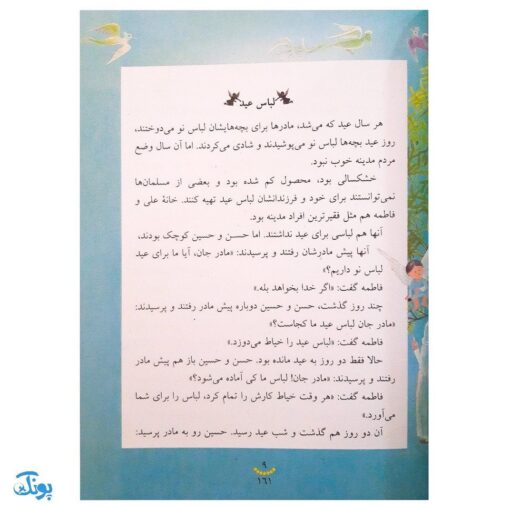 لباس عید
هر سال عید که می‌شد، مادرها برای بچه‌هایشان لباس نو می‌دوختند،
روز عید بچه‌ها لباس نو می‌پوشیدند و شادی می‌کردند. اما آن سال وضع
مردم مدینه خوب نبود.
خشکسالی بود، محصول کم شده بود و بعضی از مسلمان‌ها
نمی‌توانستند برای خود و فرزندانشان لباس عید تهیه کنند. خانهٔ علی و
فاطمه هم مثل فقیرترین افراد مدینه بود.
آنها هم لباسی برای عید نداشتند. اما حسن و حسین کوچک بودند،
آنها پیش مادرشان رفتند و پرسیدند: «مادر جان، آیا ما برای عید
لباس نو داریم؟»
فاطمه گفت: «اگر خدا بخواهد بله.»
چند روز گذشت، حسن و حسین دوباره پیش مادر رفتند و پرسیدند:
«مادر جان لباس عید ما کجاست؟»
فاطمه گفت: «لباس عید را خیاط می‌دوزد.»
حالا فقط دو روز به عید مانده بود. حسن و حسین باز هم پیش مادر
رفتند و پرسیدند: «مادر جان! لباس ما کی آماده می‌شود؟»
فاطمه گفت: «هر وقت خیاط کارش را تمام کرد، لباس را برای شما
می‌آورد.»
آن دو روز هم گذشت و شب عید رسید. حسین رو به مادر پرسید:
۹
۱۶۱
پونک